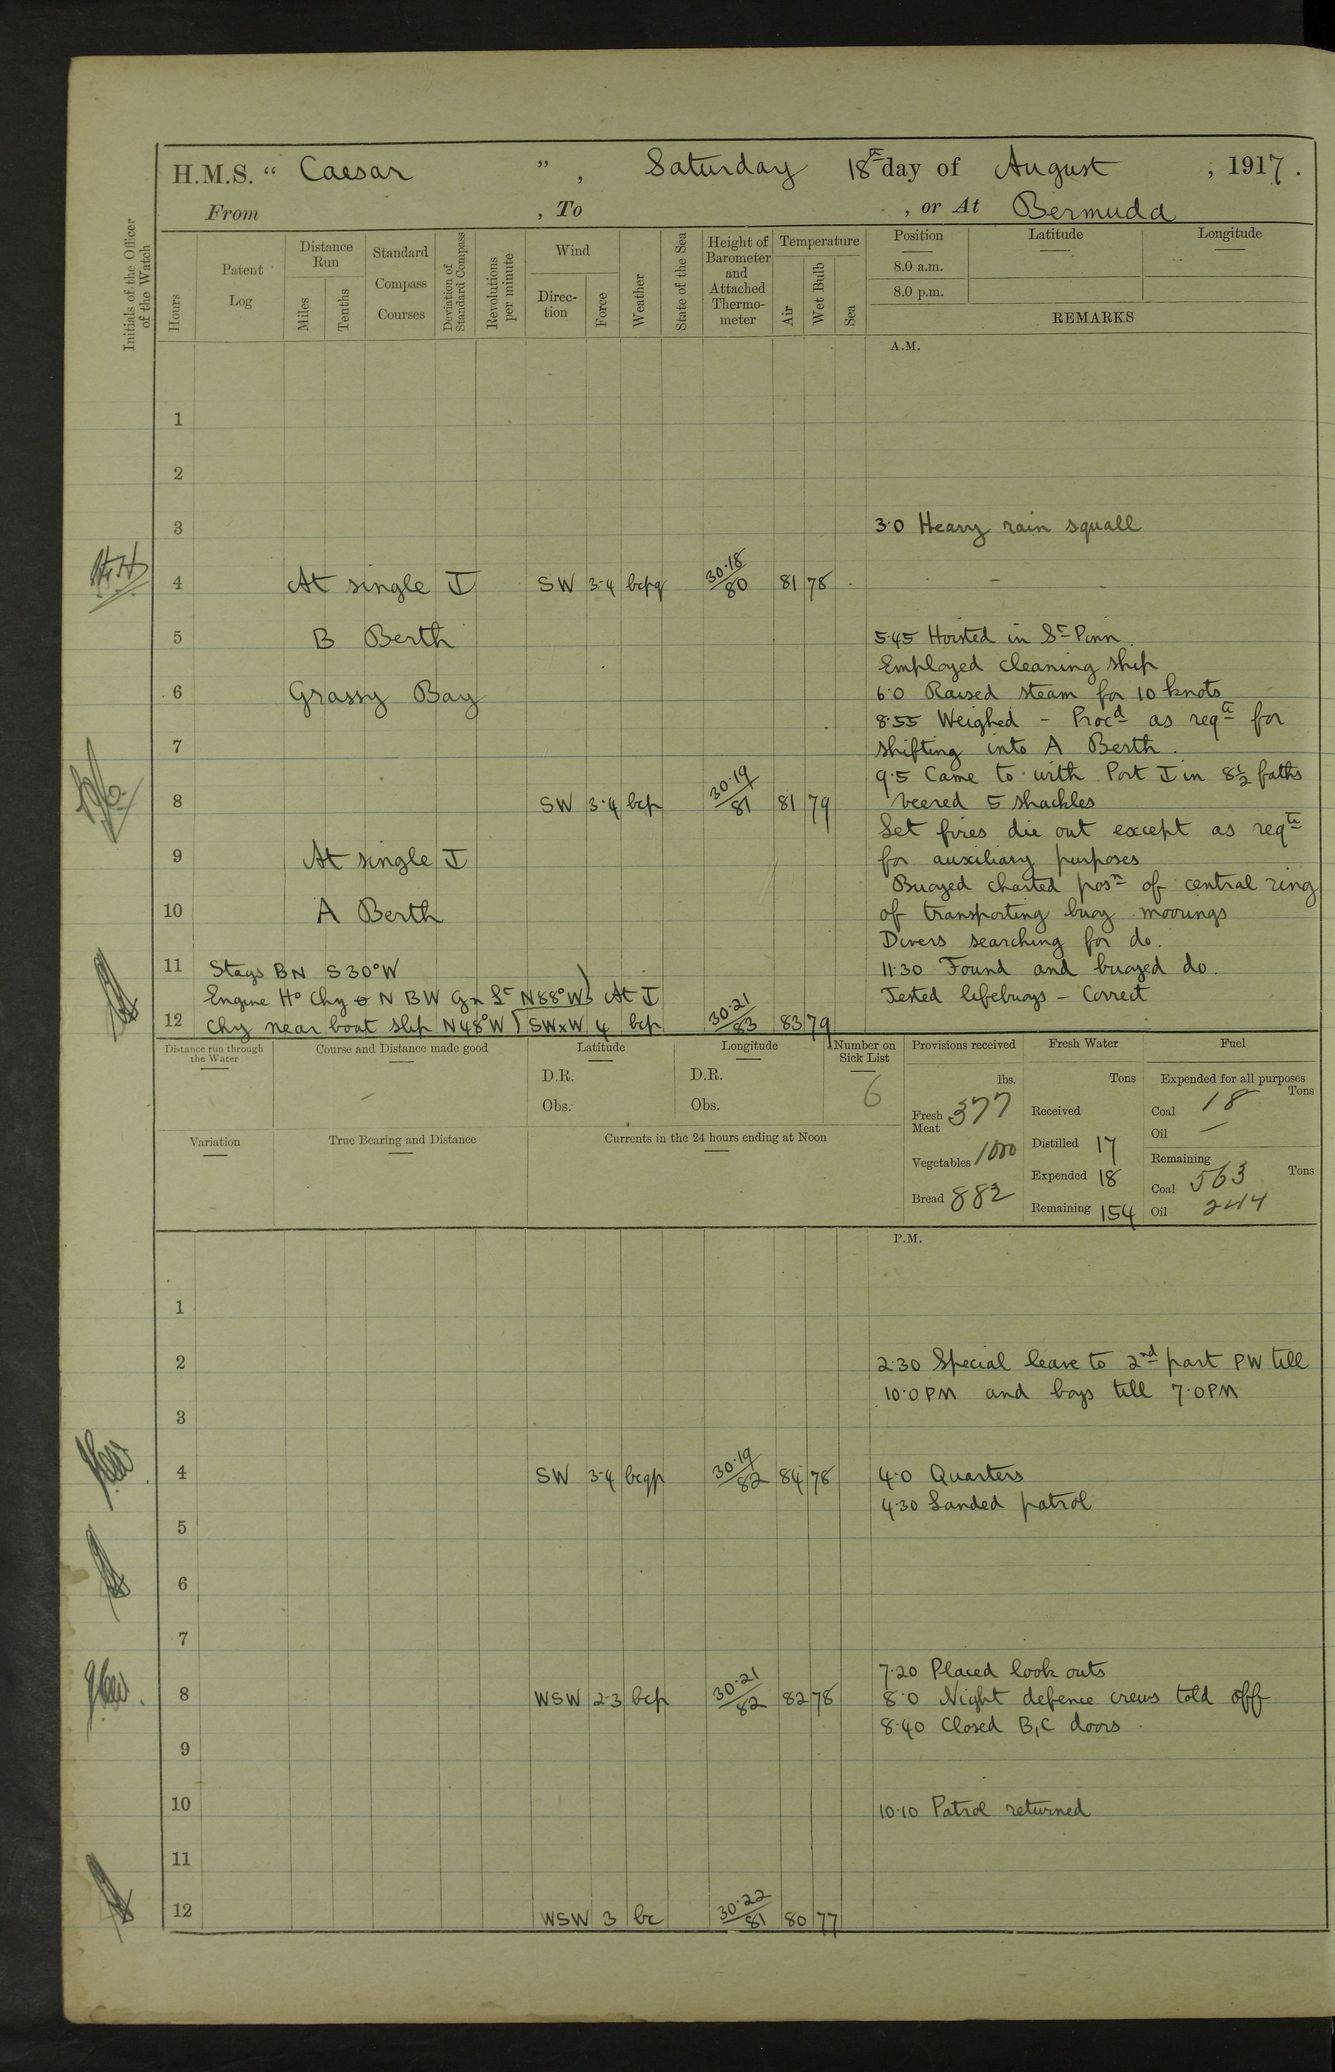 H.M.S. “ Caesar ”, Saturday 18th day of August, 1917.
From , To , or At Bermuda
Initials of the Officer of the Watch
Hours
Patent Log
Distance Run
Miles
Tenths
Standard Compass Courses
Deviation of Standard Compass
Revolutions per minute
Wind
Direc-tion
Force
Weather
State of the Sea
Height of Barometer and Attached Thermo-meter
Temperature
Air
Wet Bulb
Sea
Position
Latitude
Longitude
8.0 a.m.
8.0 p.m.
REMARKS
A.M.
1
2
3 3.0 Heavy rain squall
4 At single SW 3-4 bcpq 30.18/80 81 78
5 B Berth 5.45 Hoisted in St Pinn
Employed cleaning ship
6 Grassy Bay 6.0 Raised steam for 10 knots
8.55 Weighed - Procd as reqte for
7 shifting into A Berth.
9.5 Came to with Port in 8½ faths
8 SW 3-4 bcp 30.19/81 81 79 veered 5 shackles
Let fires die out except as reqte
9 At single for auxiliary purposes
Buoyed charted posn of central ring
10 A Berth of transporting buoy moorings
Divers searching for do.
11 Stags BN S30°W 11.30 Found and buoyed do.
Engine Ho Chy N BW Gn Lt N88°W At Tested lifebuoys - Correct
12 Chy near boat slip N48°W SWxW 4 bcp 30.21/83 83 79
Distance run through the Water
Course and Distance made good
Latitude
D.R.
Obs.
Longitude
D.R.
Obs.
Number on Sick List
6
Provisions received
lbs.
Fresh Meat 377
Vegetables 1000
Bread 882
Fresh Water
Tons
Received
Distilled 17
Expended 18
Remaining 154
Fuel
Expended for all purposes
Tons
Coal 18
Oil —
Remaining
Tons
Coal 563
Oil 244
Variation
True Bearing and Distance
Currents in the 24 hours ending at Noon
P.M.
1
2 2.30 Special leave to 2nd part PW till
10.0 PM and boys till 7.0 PM
3
4 SW 3-4 bcqp 30.19/82 84 78 4.0 Quarters
4.30 Landed patrol
5
6
7
7.20 Placed look outs
8 WSW 2-3 bcp 30.21/82 82 78 8.0 Night defence crews told off
8.40 Closed B, C doors
9
10 10.10 Patrol returned
11
12 WSW 3 bc 30.22/81 80 77